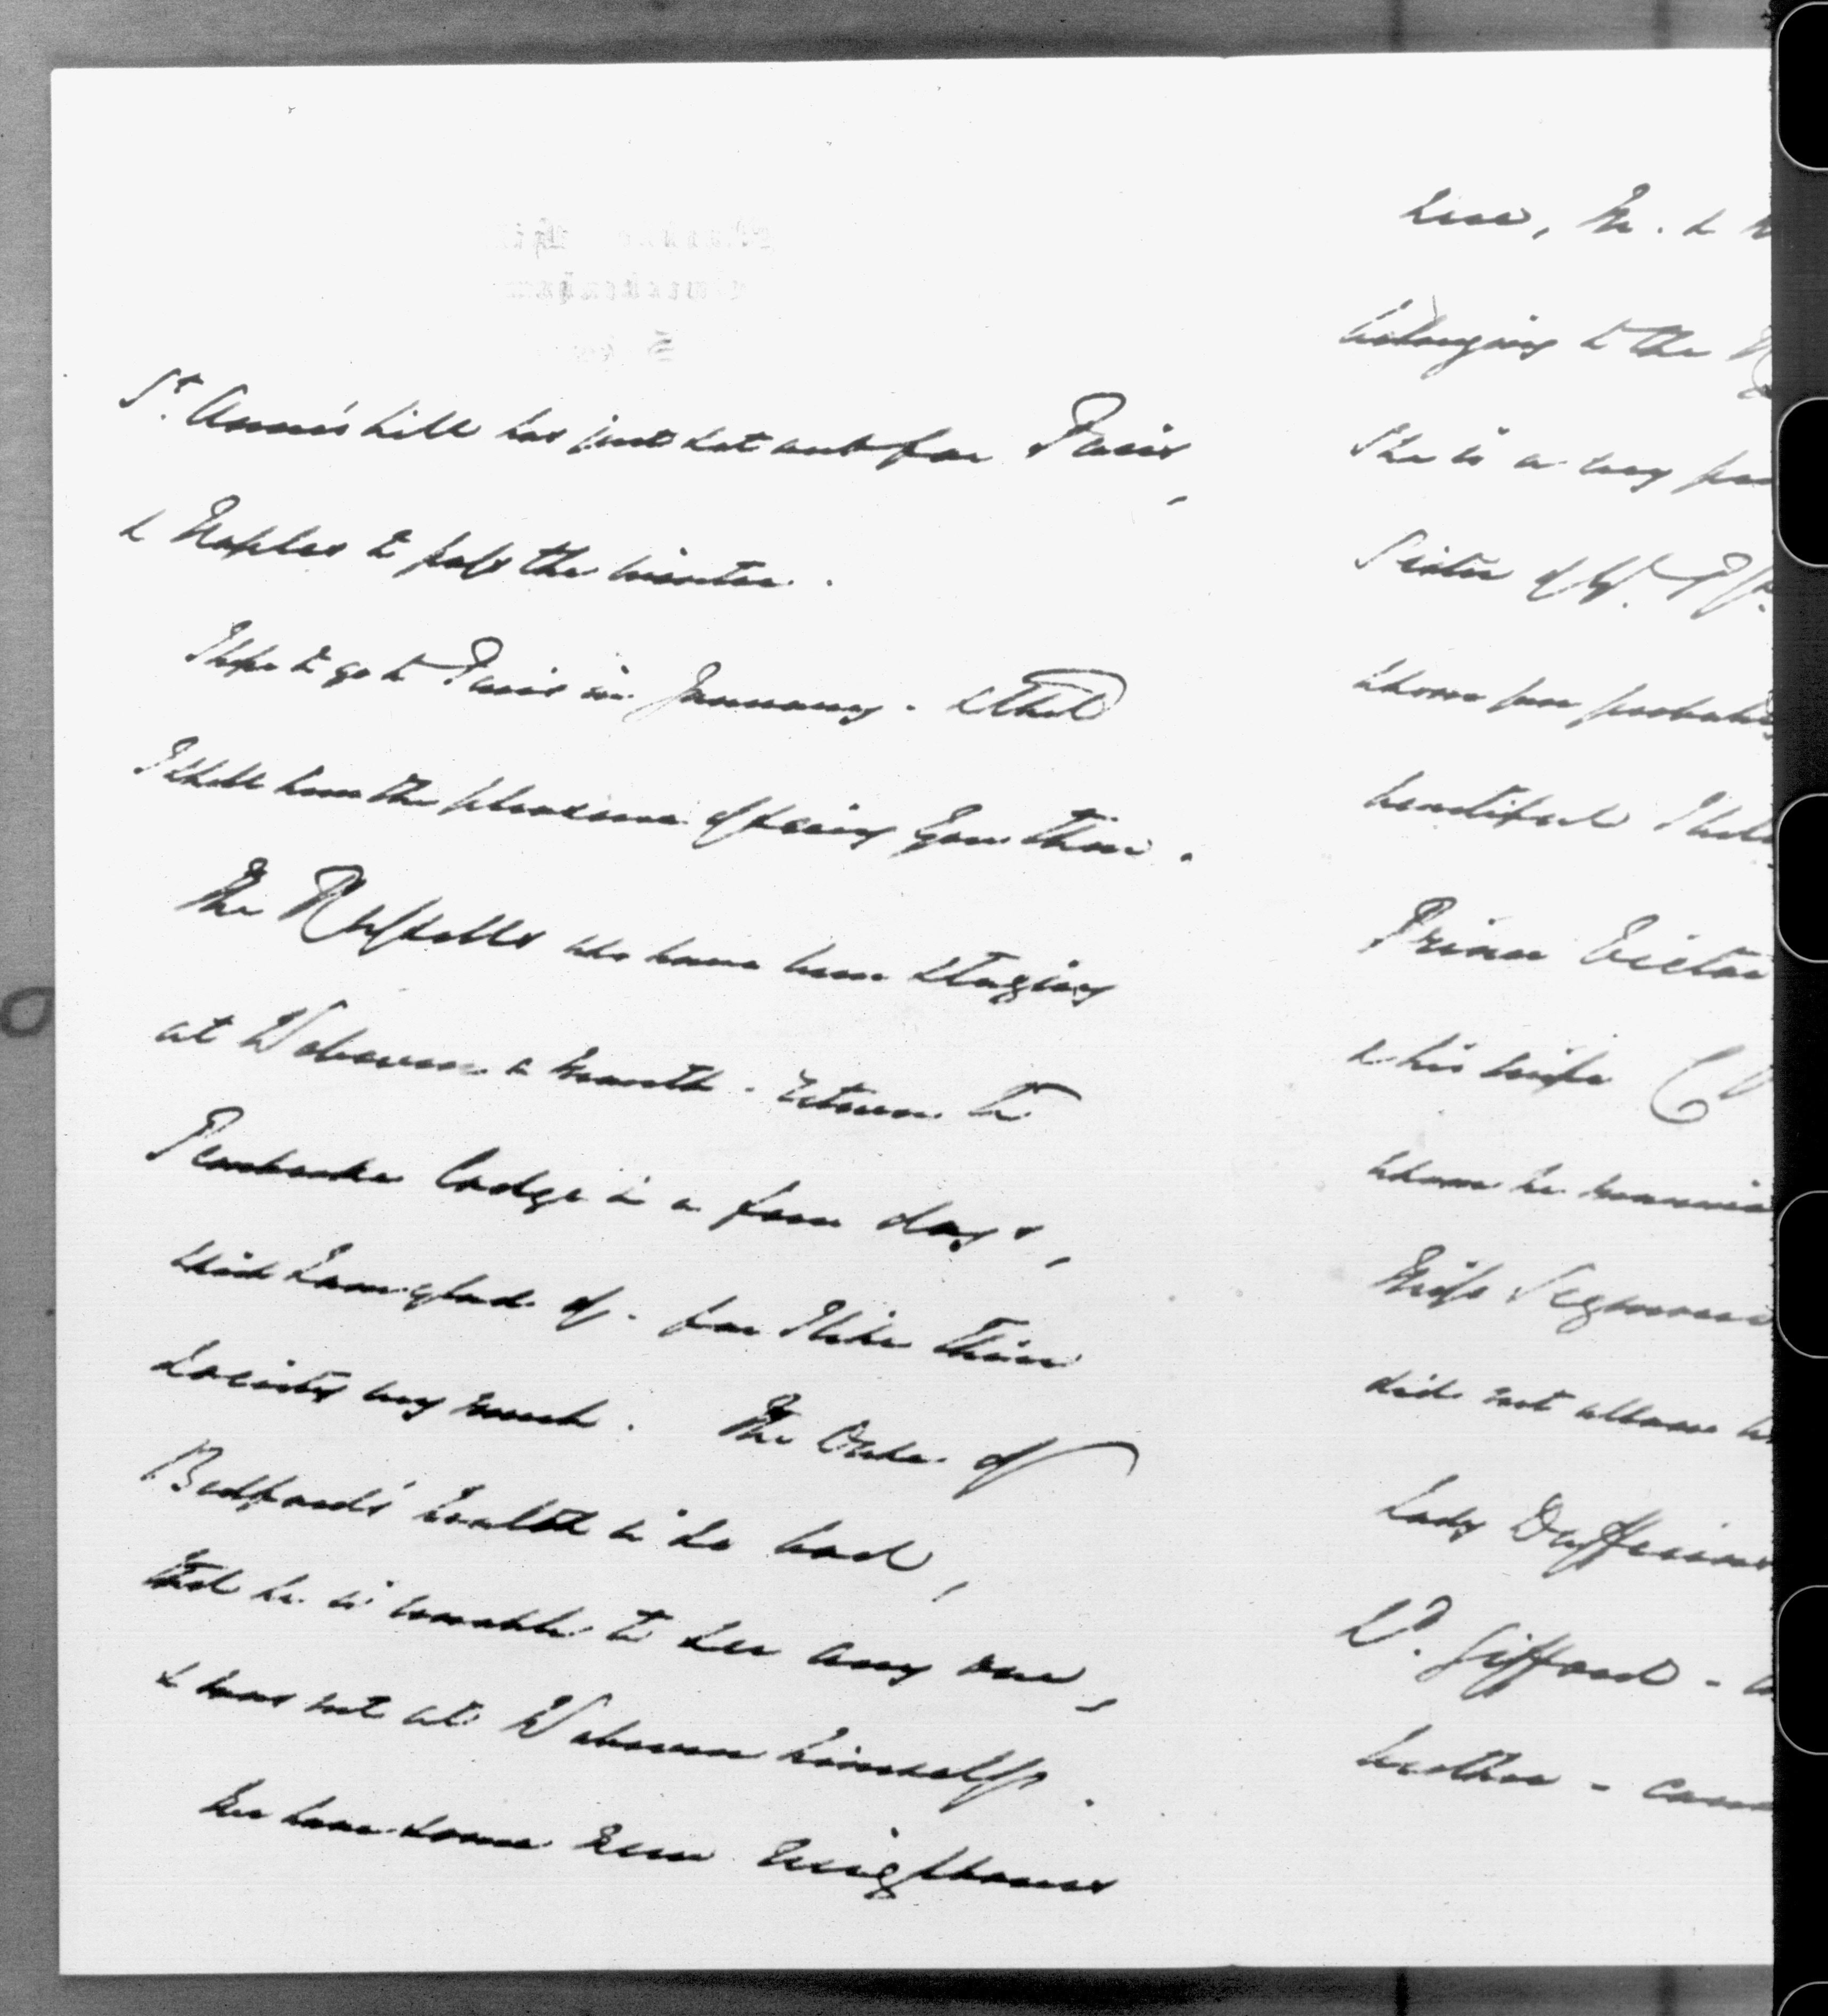 St. Anne's hill has just set out for Paris,
& Naples to pass the winter.
I hope to go to Paris in January. & that
I shall have the pleasure of seeing you then.
The Russells who have been staying
at Woburn a month. return to
Pembroke Lodge in a few days,
which I am glad of. for I like their
society very much. The Duke of
Bedford's health is so bad,
that he is unable to see any one,
& was not at Woburn himself.
We have some new neighbours
here, Mr. &
belonging to the
She is a very
Sister of W.
whom you probably
beautiful
Prince Victor
& his wife
whom he married
Miss Seymour
did not allow
Lady Dufferin
Ld. Gifford -
brother -